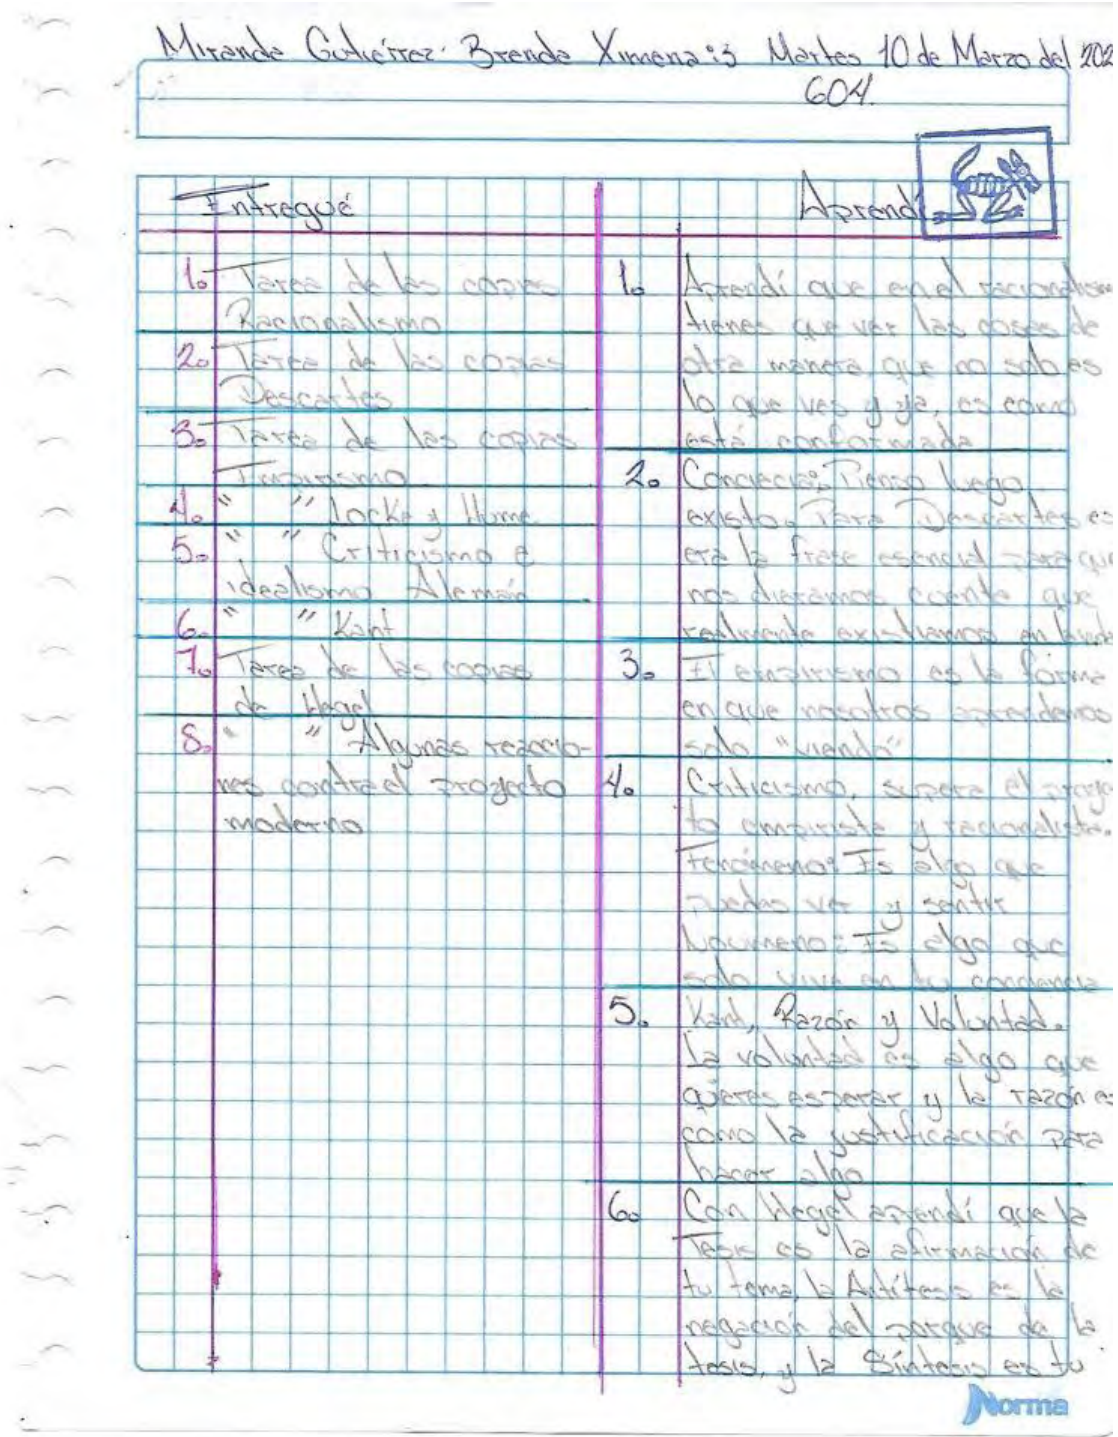 Miranda Gutiérrez Brenda Ximena :3 Martes 10 de Marzo del 202
604.
Entregué
1. Tarea de las copias
Racionalismo
2. Tarea de las copias
Descartes
3. Tarea de las copias
Empirismo
4. " " Locke y Hume
5. " " Criticismo e
idealismo Alemán
6. " " Kant
7. Tarea de las copias
de Hegel
8. " " Algunas reaccio-
nes contra el proyecto
moderno
Aprendí
1. Aprendí que en el racionalism
tienes que ver las cosas de
otra manera, que no solo es
lo que ves y ya, es como
está conformada
2. Conciecia: Pienso luego
existo. Para Descartes es
era la frase esencial para que
nos dieramos cuenta que
realmente existiamos en
3. El empirismo es la forma
en que nosotros aprendemos
solo "viendo"
4. Criticismo, supera el proye
to empirista y racionalista.
Fenómeno: Es algo que
puedas ver y sentir
Noumeno: Es algo que
solo vive en tu conciencia
5. Kant, Razón y Voluntad.
La voluntad es algo que
quieres esperar y la razón es
como la justificación para
hacer algo
6. Con Hegel aprendí que la
Tesis es la afirmación de
tu tema, la Antítesis es la
negación del porque de la
tesis, y la Síntesis es tu
Norma